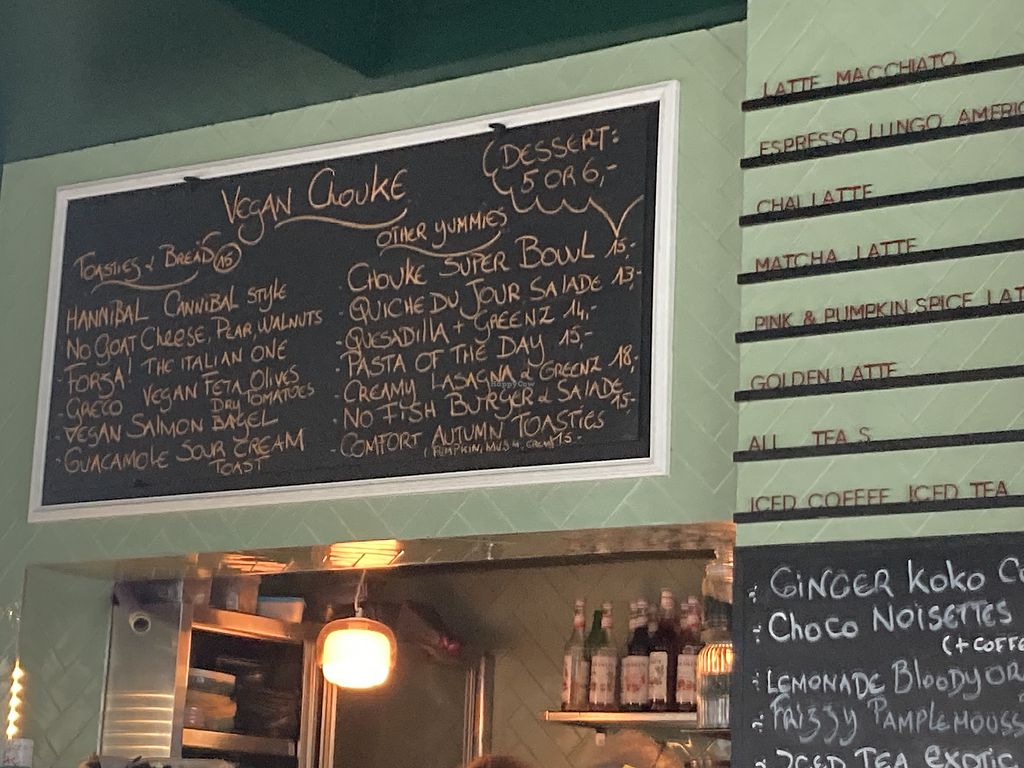 VEGAN CHOUKE
DESSERT:
5 OR 6,-
TOASTIES & BREADS 15
HANNIBAL CANNIBAL STYLE
NO GOAT CHEESE, PEAR, WALNUTS
- FORZA! THE ITALIAN ONE
- GRECO VEGAN FETA OLIVES
DRY TOMATOES
- VEGAN SALMON BAGEL
- GUACAMOLE SOUR CREAM
TOAST
OTHER YUMMIES
- CHOUKE SUPER BOWL 15,-
- QUICHE DU JOUR SALADE 13,-
- QUESADILLA + GREENZ 14,-
- PASTA OF THE DAY 15,-
- CREAMY LASAGNA & GREENZ 18,-
- NO FISH BURGER & SALADE 15-
- COMFORT AUTUMN TOASTIES
(PUMPKIN, MUSH, CREM) 15-
HappyCow
LATTE MACCHIATO
ESPRESSO LUNGO AMERIC
CHAI LATTE
MATCHA LATTE
PINK & PUMPKIN SPICE LAT
GOLDEN LATTE
ALL TEA S
ICED COFFEE ICED TEA
GINGER KOKO
CHOCO NOISETTES
(+ COFFE
LEMONADE BLOODY OR
FRIZZY PAMPLEMOUSS
ICED TEA EXOTIC